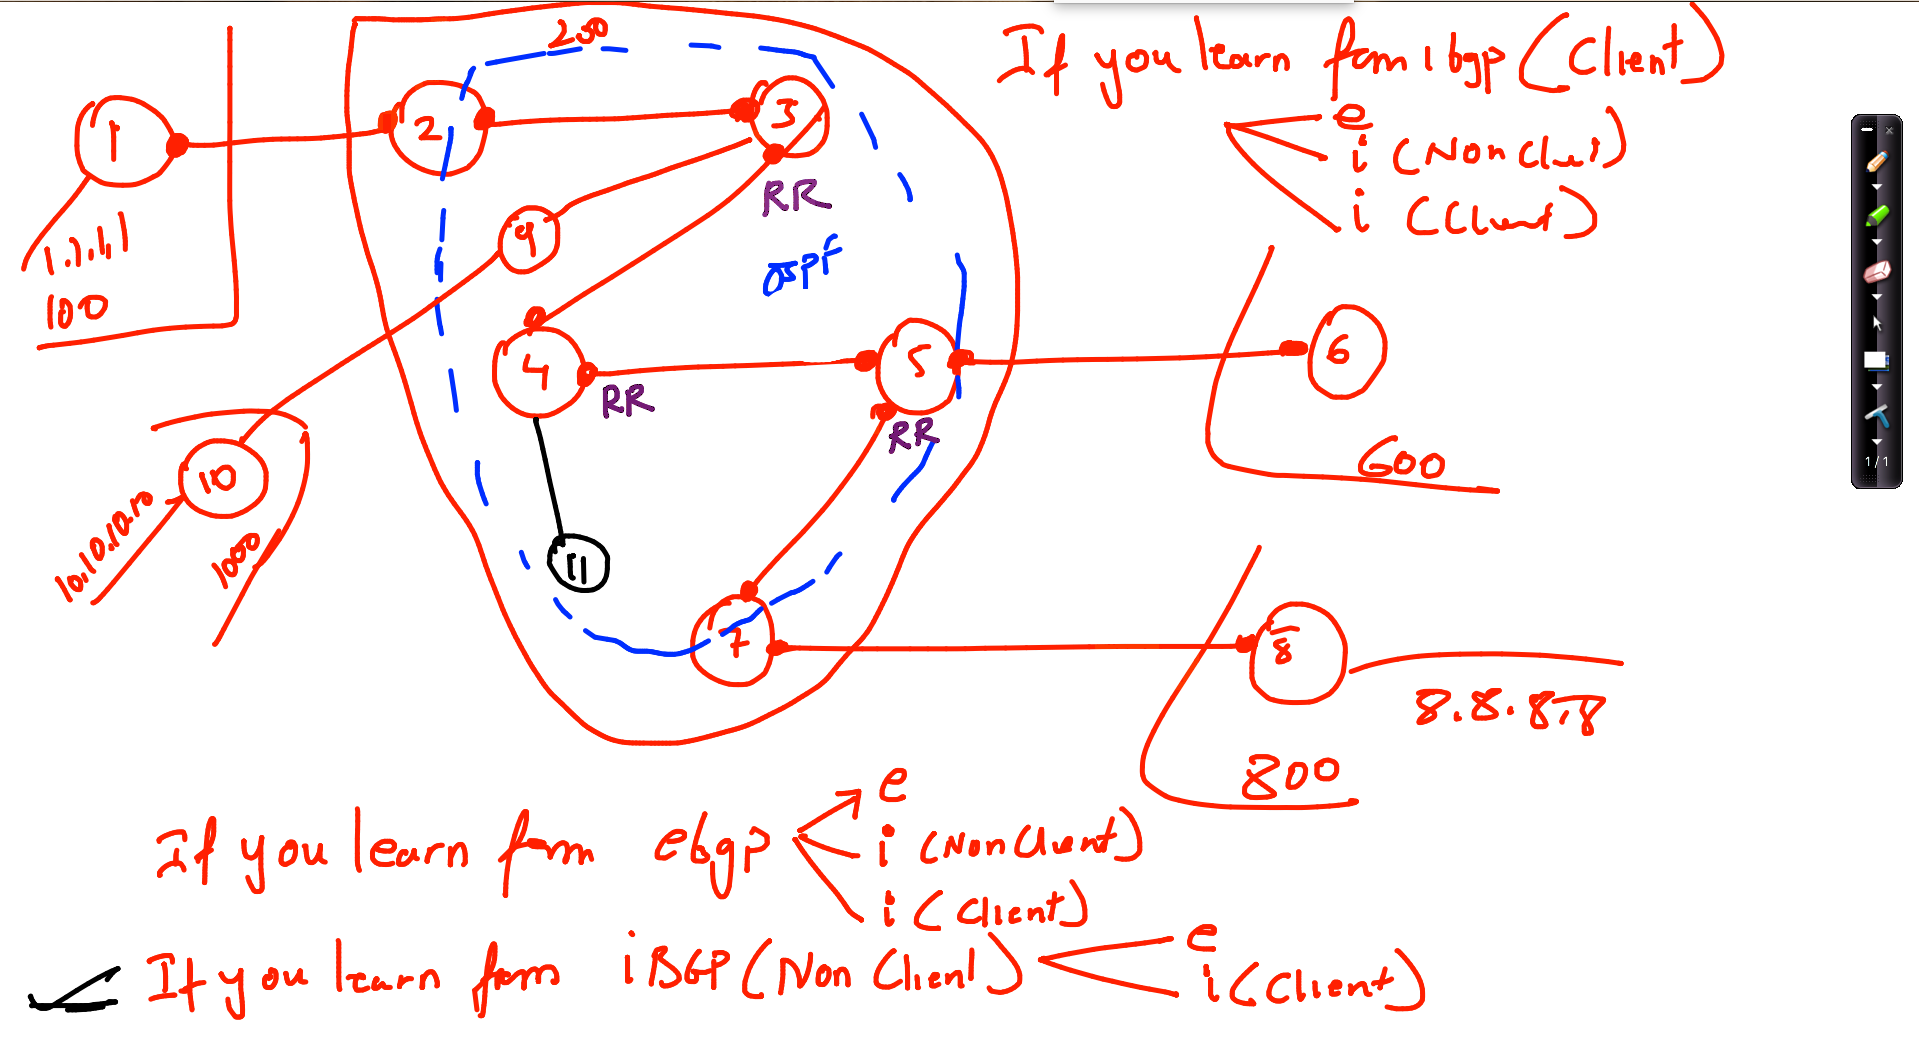 If you learn from ibgp (Client)
e
i (Non Client)
i (Client)
230
1
2
3
RR
9
1.1.1.1
100
OSPF
4
RR
5
RR
6
600
10
10.10.10.10
1000
11
7
8
8.8.8.8
800
If you learn from ebgp
e
i (Non Client)
i (Client)
If you learn from iBGP (Non Client)
e
i (Client)
1/1